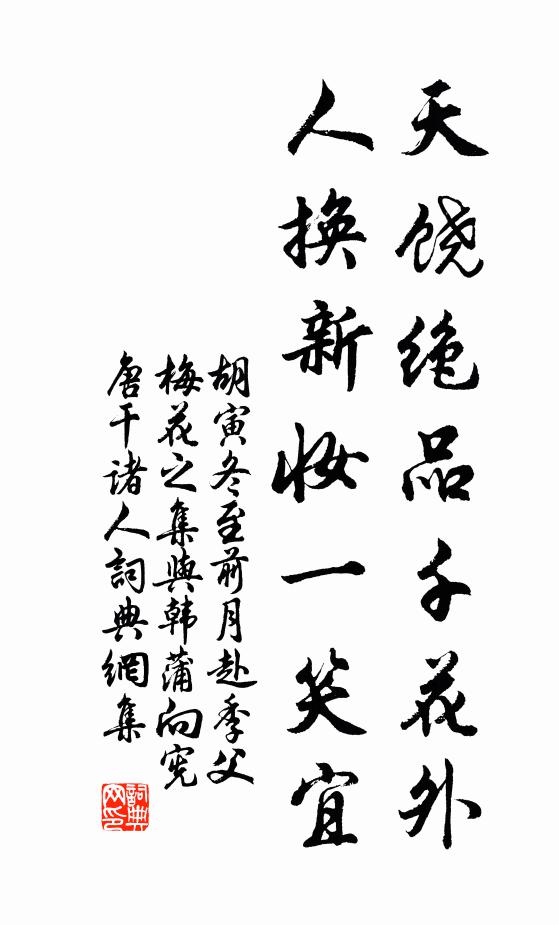 天饶绝品千花外
人换新妆一笑宜
胡寅冬至前月赴季父
梅花之集與韩蒲向宪
唐干诸人詞典網集
詞典
网印